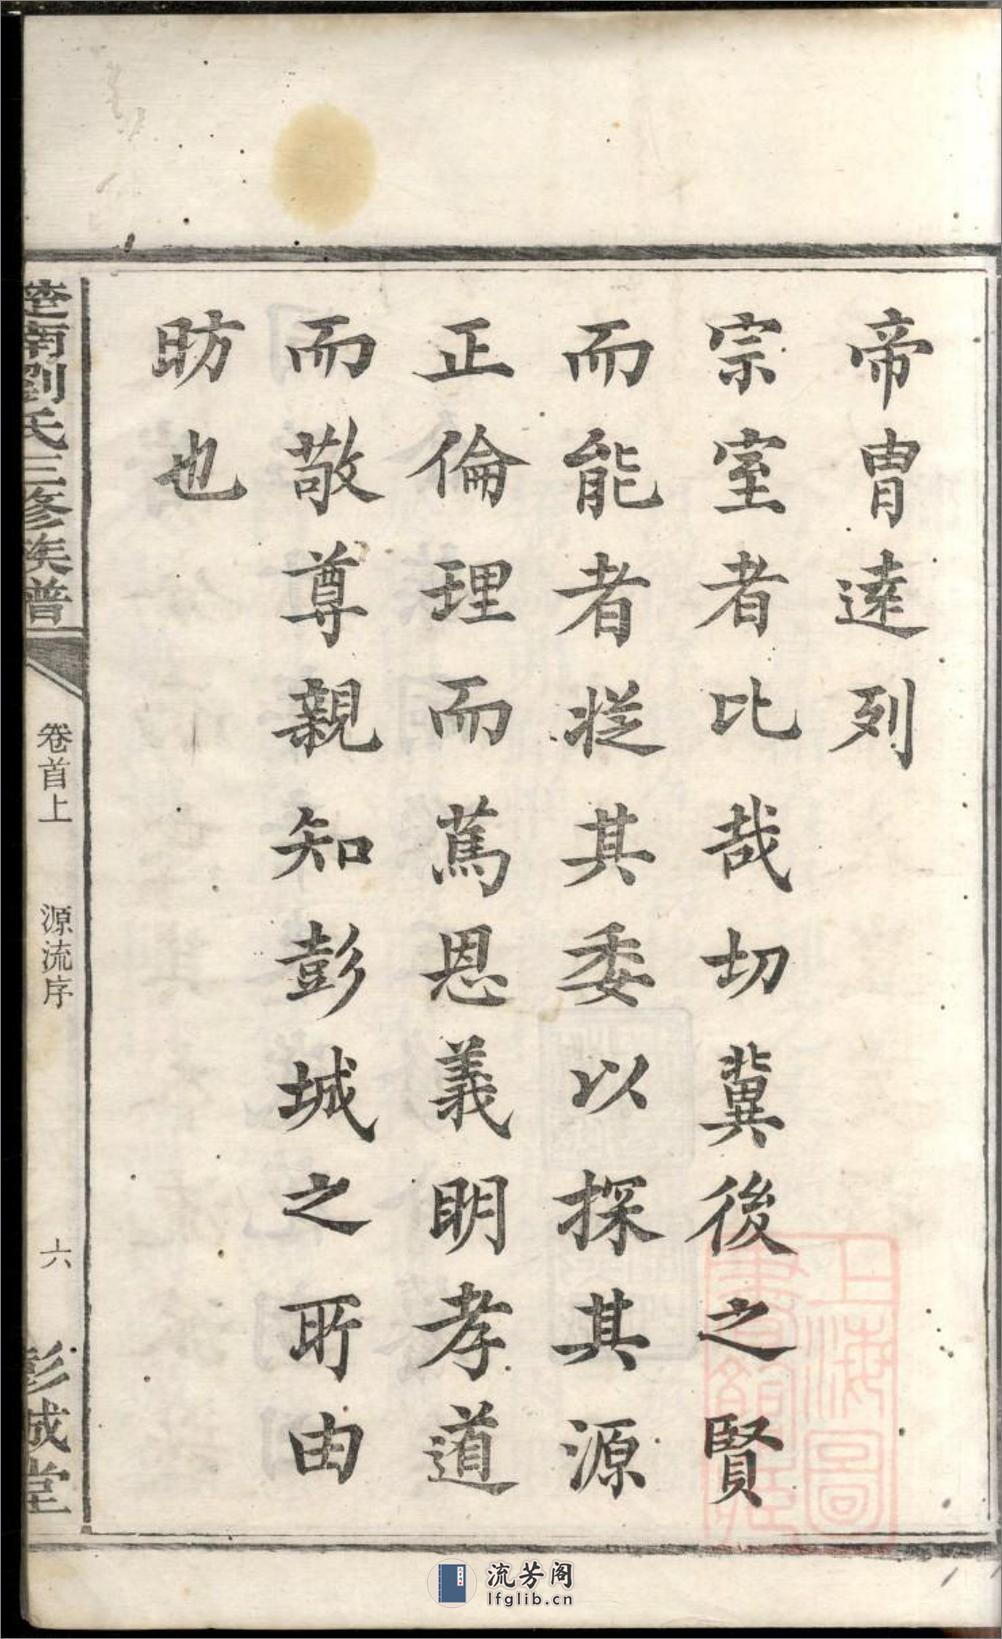 帝胄逺列
宗室者比哉切冀後之賢
而能者㳂其委以探其源
正倫理而篤恩義明孝道
而敬尊親知彭城之所由
昉也
楚南劉氏三修族譜
卷首上
源流序
六
彭城堂
上海圖書館藏
流芳阁
lfglib.cn